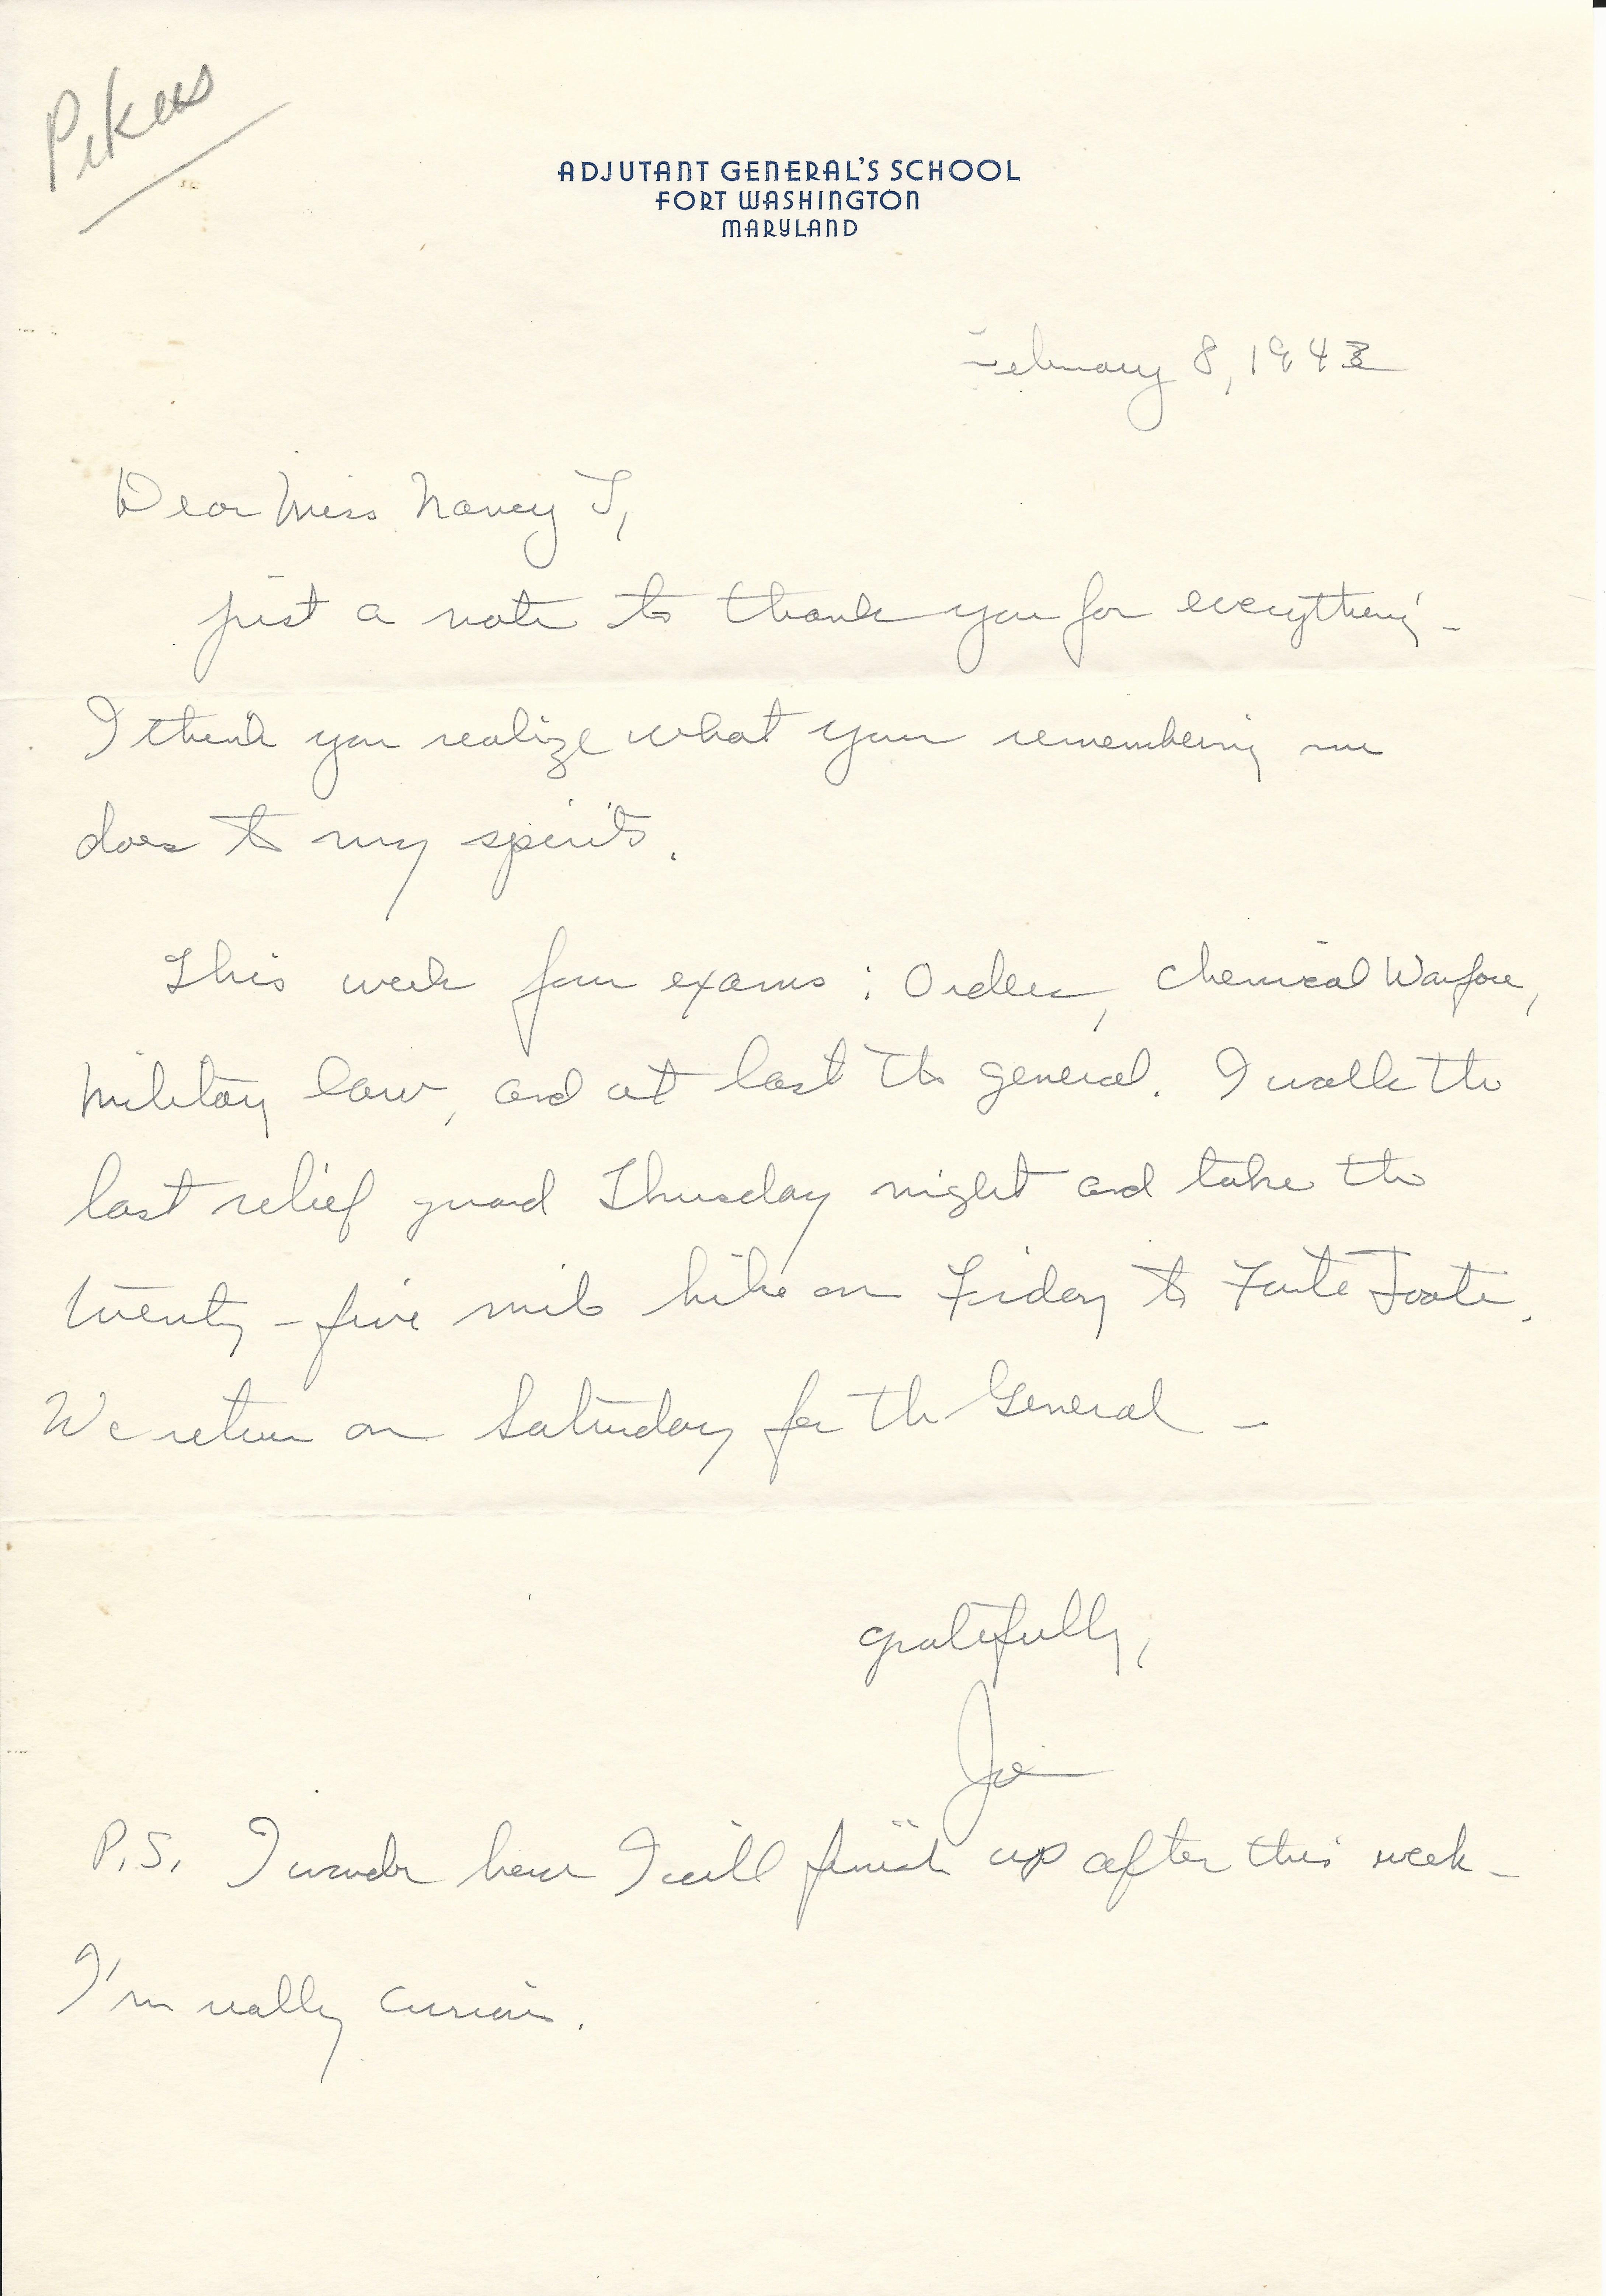 Pikus
ADJUTANT GENERAL'S SCHOOL
FORT WASHINGTON
MARYLAND
February 8, 1943
Dear Miss Nancy T,
just a note to thank you for everything -
I think you realize what your remembering me
does to my spirits.
This week four exams: Orders, Chemical Warfare,
Military law, and at last the general. I walk the
last relief guard Thursday night and take the
twenty-five mile hike on Friday to Forte Foote.
We return on Saturday for the General -
gratefully,
Joe
P.S. I wonder how I will finish up after this week -
I'm really curious.